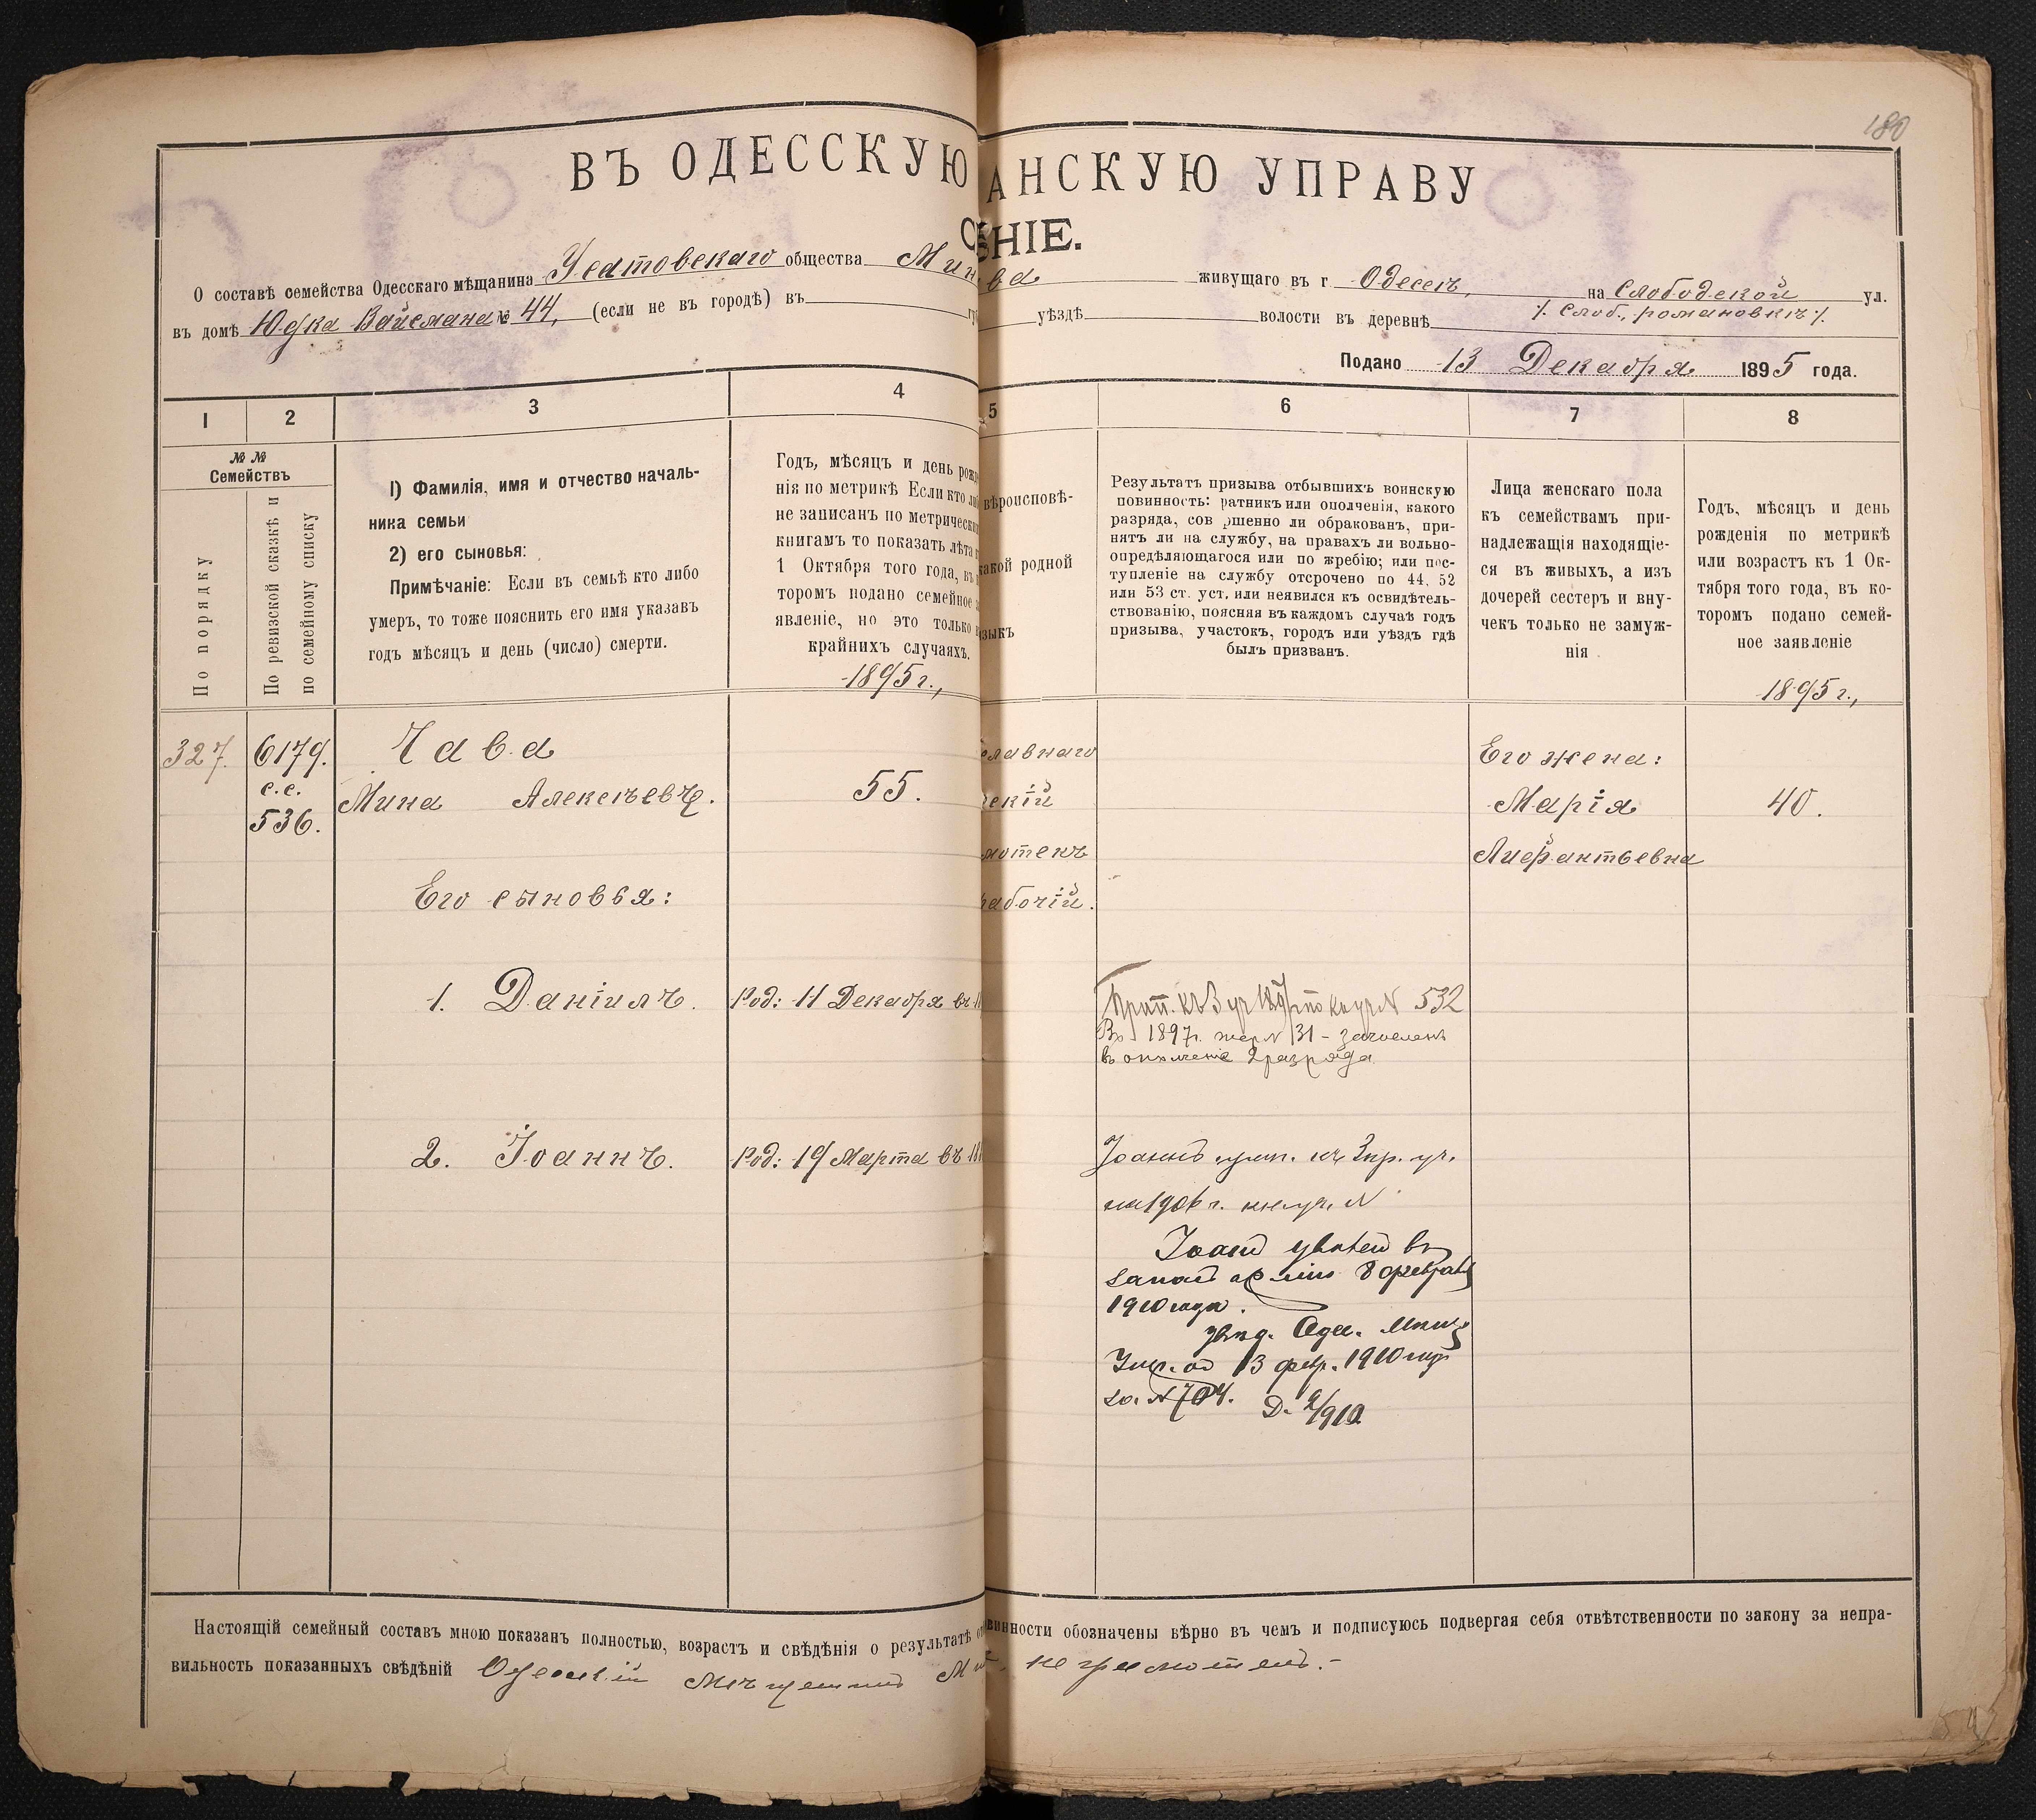 180
ВЪ ОДЕССКУЮ АНСКУЮ УПРАВУ
НІЕ.
О составѣ семейства Одесскаго мѣщанина Усатовскаго общества Мин ва живущаго въ г. Одессѣ, на Слободской ул.
въ домѣ Юдка Вайсмана № 44, (если не въ городѣ) въ уѣздѣ волости въ деревнѣ ·/. Слоб., романовкѣ ·/.
Подано 13 Декабря 1895 года.
1 2 3 4 5 6 7 8
№ №
Семействъ
По порядку
По ревизской сказкѣ и
по семейному списку
1) Фамилія, имя и отчество началь-
ника семьи
2) его сыновья:
Примѣчаніе: Если въ семьѣ кто либо
умеръ, то тоже пояснить его имя указавъ
годъ мѣсяцъ и день (число) смерти.
Годъ, мѣсяцъ и день рожд
нія по метрикѣ Если кто ли
не записанъ по метрически
книгамъ то показать лѣта
1 Октября того года, въ
торомъ подано семейное з
явленіе, но это только
крайнихъ случаяхъ.
1895 г.,
вѣроисповѣ-
какой родной
языкъ
Результатъ призыва отбывшихъ воинскую
повинность: ратникъ или ополченія, какого
разряда, сов ршенно ли обракованъ, при-
нятъ ли на службу, на правахъ ли вольно-
опредѣляющагося или по жребію; или пос-
тупленіе на службу отсрочено по 44, 52
или 53 ст. уст. или неявился къ освидѣтель-
ствованію, поясняя въ каждомъ случаѣ годъ
призыва, участокъ, городъ или уѣздъ гдѣ
былъ призванъ.
Лица женскаго пола
къ семействамъ при-
надлежащія находящіе-
ся въ живыхъ, а изъ
дочерей сестеръ и вну-
чекъ только не замуж-
нія
Годъ, мѣсяцъ и день
рожденія по метрикѣ
или возрастъ къ 1 Ок-
тября того года, въ ко-
торомъ подано семей-
ное заявленіе
1895 г.,
327.
6179.
с.с.
536.
Чава
Мина Алексѣевъ.
55.
славнаго
скій
мотенъ
рабочій.
Его жена:
Марія
40.
Его сыновья:
1. Даніилъ.
Род: 11 Декабря въ 1
532
В 1897г. жер N 31 - зачисленъ
въ ополченіе 2 разряда
2. Іоаннъ.
Род: 19 Марта въ 18
Іоаннъ прип. къ 3 пр. уч.
на 1906 г. N
8 февраля
1910 года.
Одес. Мѣщ.
13 февр. 1910 года
за N 704.
Настоящій семейный составъ мною показанъ полностью, возрастъ и свѣдѣнія о результатѣ о винности обозначены вѣрно въ чемъ и подписуюсь подвергая себя отвѣтственности по закону за непра-
вильность показанныхъ свѣдѣній Одесскій Мѣщанинъ Ми неграмотенъ.-